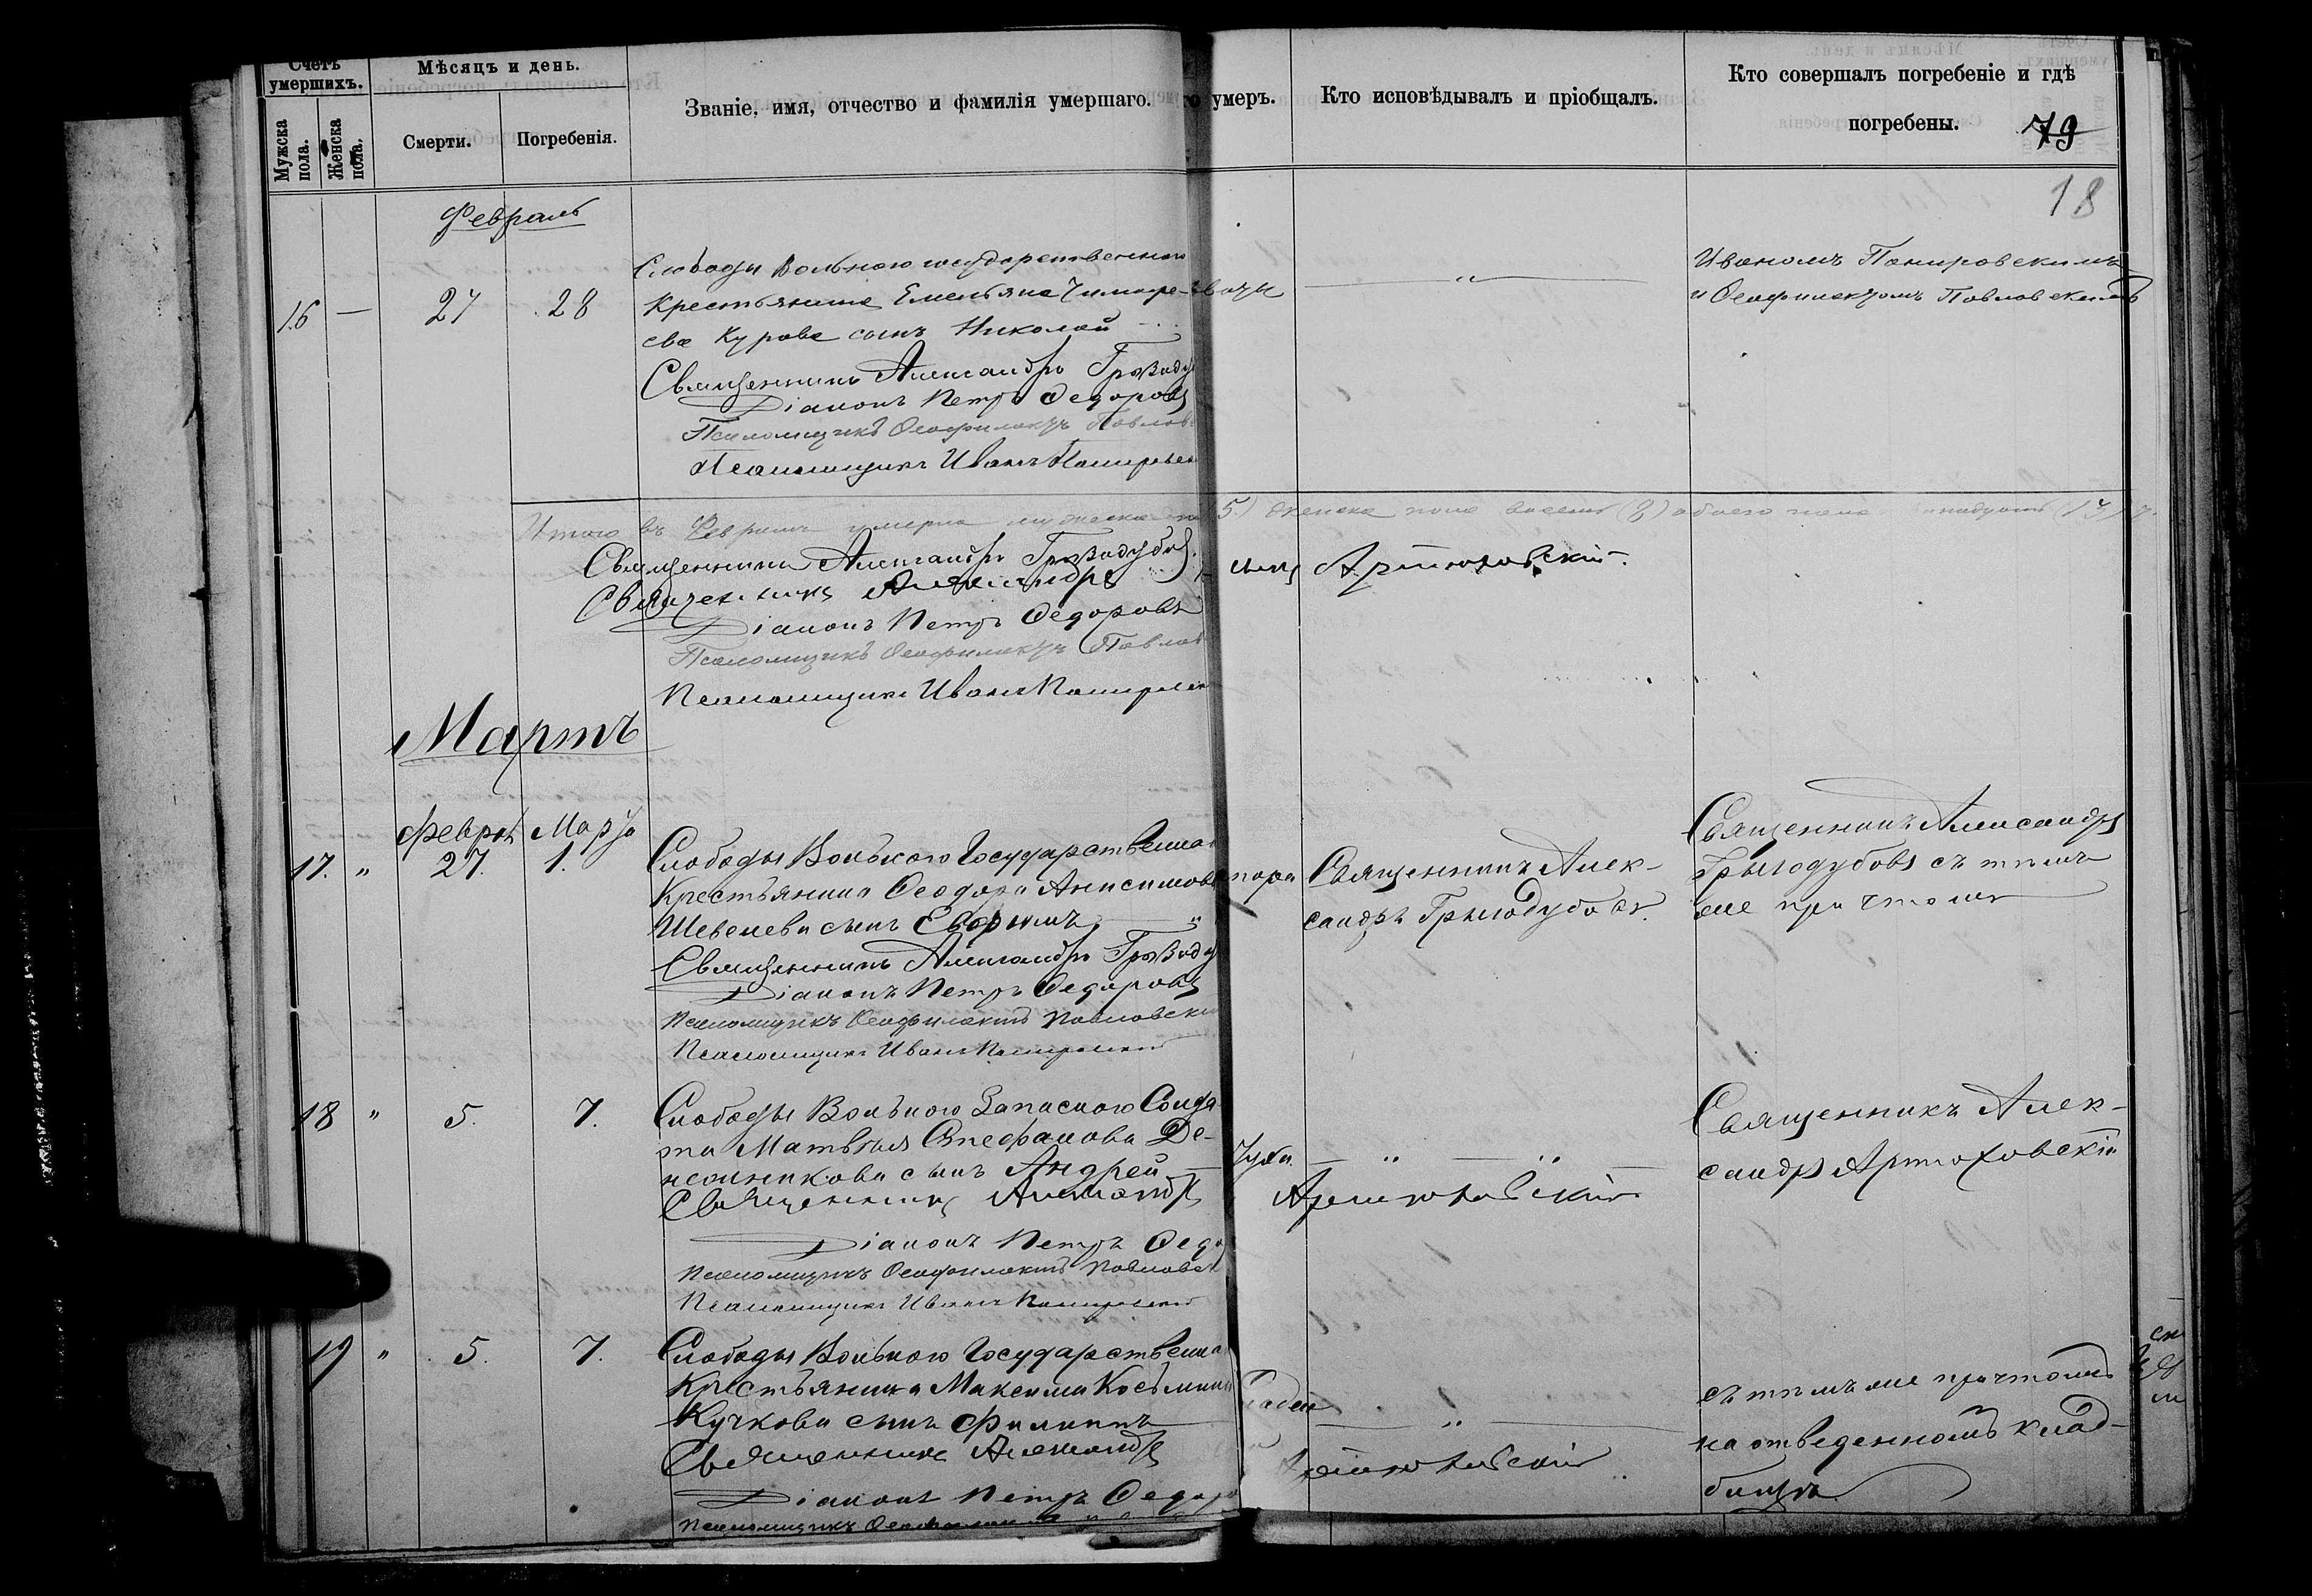 Счетъ умершихъ.
Мѣсяцъ и день.
Мужска пола.
Женска пола.
Смерти.
Погребенія.
Званіе, имя, отчество и фамилія умершаго.
умеръ.
Кто исповѣдывалъ и пріобщалъ.
Кто совершалъ погребеніе и гдѣ
погребены.
79
18
Февраль
16 — 27 28
Слободы Вольного государственного
Крестьянина Емельяна Тимофе-
ева Курова сынъ Николай
Священникъ Александръ
Діаконъ Петръ Федоровъ
Псаломщикъ Феофилактъ Павлов
Псаломщикъ Иванъ
Иваномъ
и Феофилактомъ Павловскимъ
Итого въ Февралѣ умерло мужска 5) женска пола восемь (8) обоего пола
Священникъ Александръ
Священникъ Александръ Артюховскій.
Діаконъ Петръ Федоровъ
Псаломщикъ Феофилактъ Павлов
Псаломщикъ Иванъ
Мартъ
Феврал Марта
17. " 27. 1.
Слободы Вольного Государственна
Крестьянина Феодора Анисимова
Шевелева сынъ Ефимъ "
Священникъ Александръ
Діаконъ Петръ Федоровъ
Псаломщикъ Феофилактъ Павловски
Псаломщикъ Иванъ
Священникъ Алек-
сандръ
Священникъ Александръ
съ тѣмъ
же причтомъ
18 " 5. 7.
Слободы Вольного Запасного Солда
та Матвѣя Стефанова
сынъ Андрей
Священникъ Александръ Артюховскій
Діаконъ Петръ Федо
Псаломщикъ Феофилактъ Павловск
Псаломщикъ Иванъ
Священникъ Алек-
сандръ Артюховскій
19 " 5. 7.
Слободы Вольного Государственна
Крестьянина Максима Косьмина
Кучкова сынъ Филиппъ
Священникъ Александръ Артюховскій
Діаконъ Петръ Федоро
Псаломщикъ
съ тѣмъ же причтомъ
на отведенномъ клад-
бищѣ